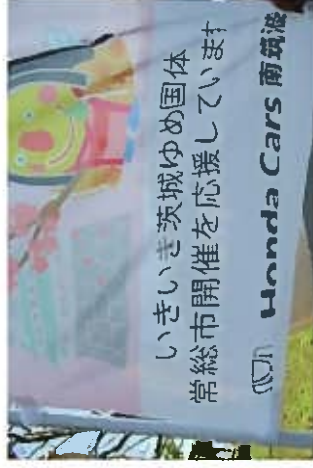 いきいき茨城ゆめ国体
常総市開催を応援しています
Honda Cars 南筑波